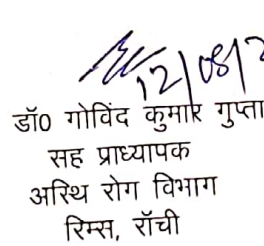 12/08/2
डॉ0 गोविंद कुमार गुप्ता
सह प्राध्यापक
अस्थि रोग विभाग
रिम्स, राँची